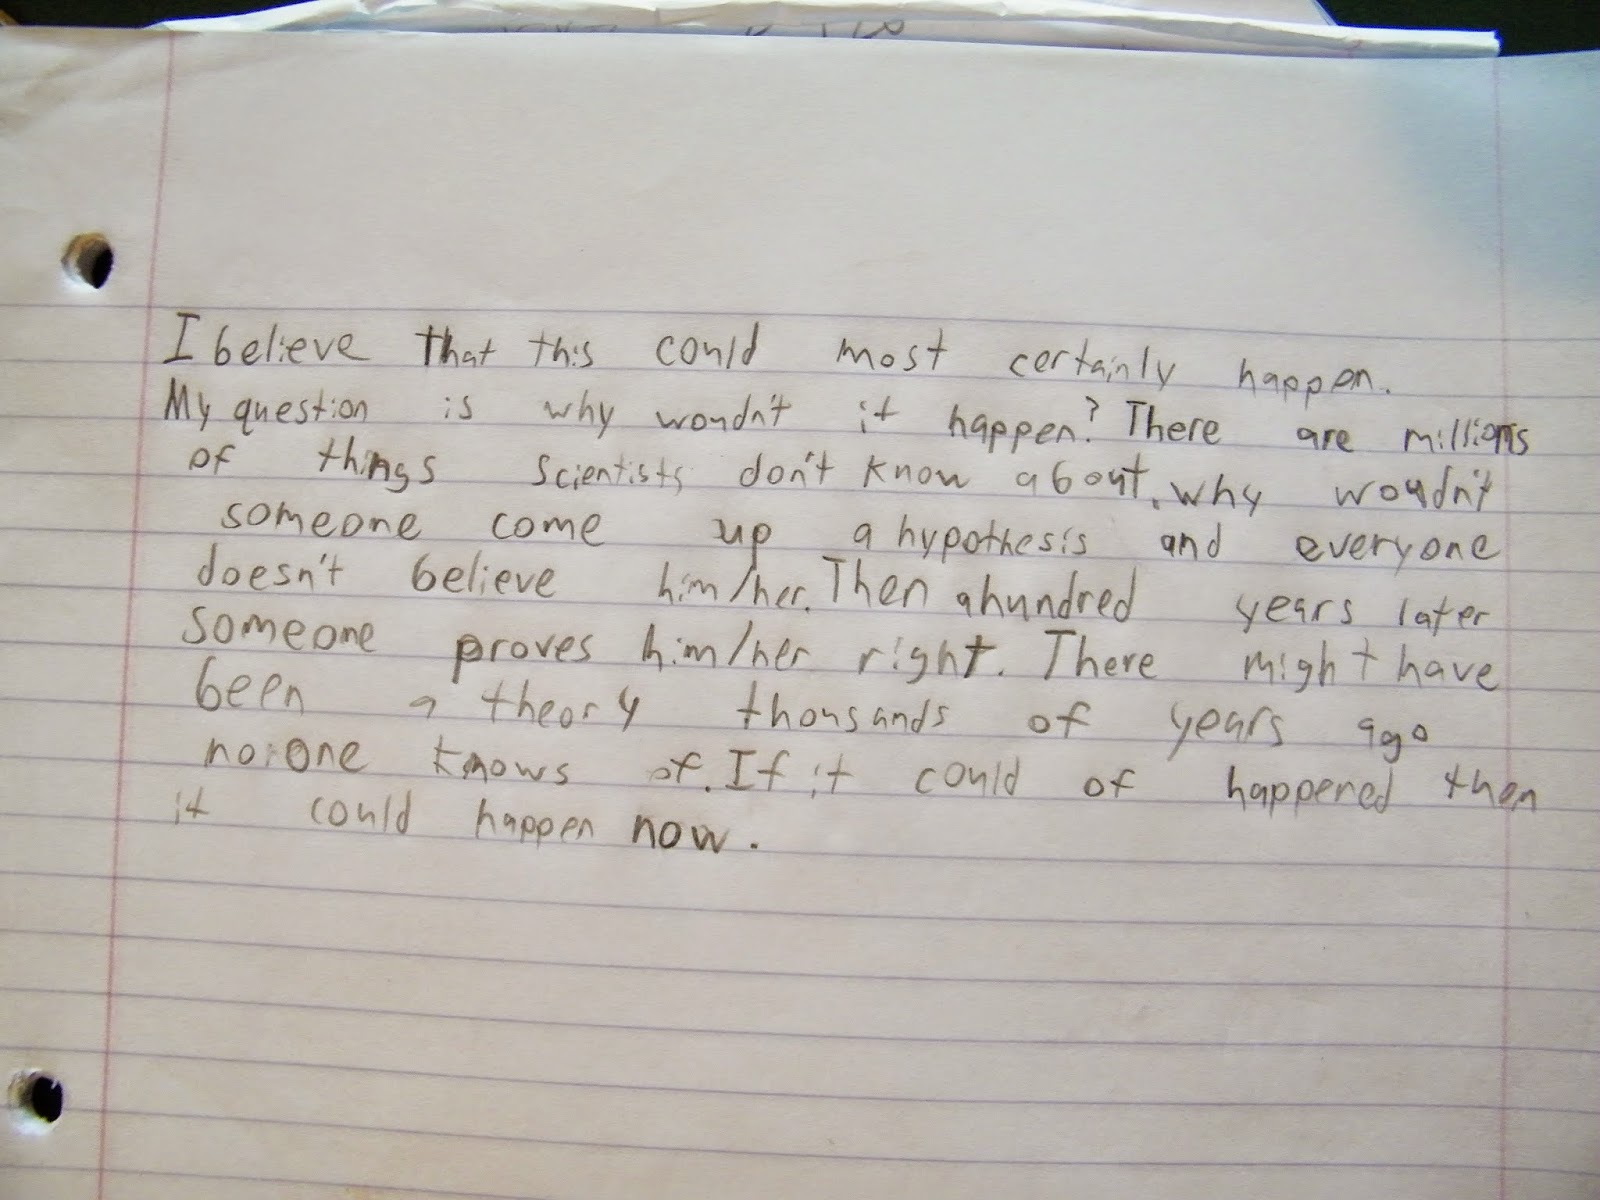 I believe that this could most certainly happen.
My question is why woudn't it happen? There are millions
of things scientists don't know about. Why woudn't
someone come up a hypothesis and everyone
doesn't believe him/her. Then a hundred years later
someone proves him/her right. There might have
been a theory thousands of years ago
no one knows of. If it could of happened then
it could happen now.